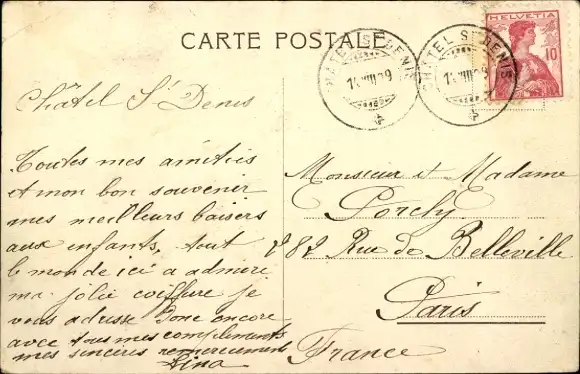 CARTE POSTALE
CHÂTEL ST DENIS
CHÂTEL ST DENIS
HELVETIA
10
Châtel St Denis
Toutes mes amitiés
et mon bon souvenir
mes meilleurs baisers
aux enfants, tout
le monde ici a admiré
ma jolie coiffure je
vous adresse donc encore
avec tous mes compliments
mes sincères remerciements
Lina
Monsieur et Madame
Porchy
282 Rue de Belleville
Paris
France